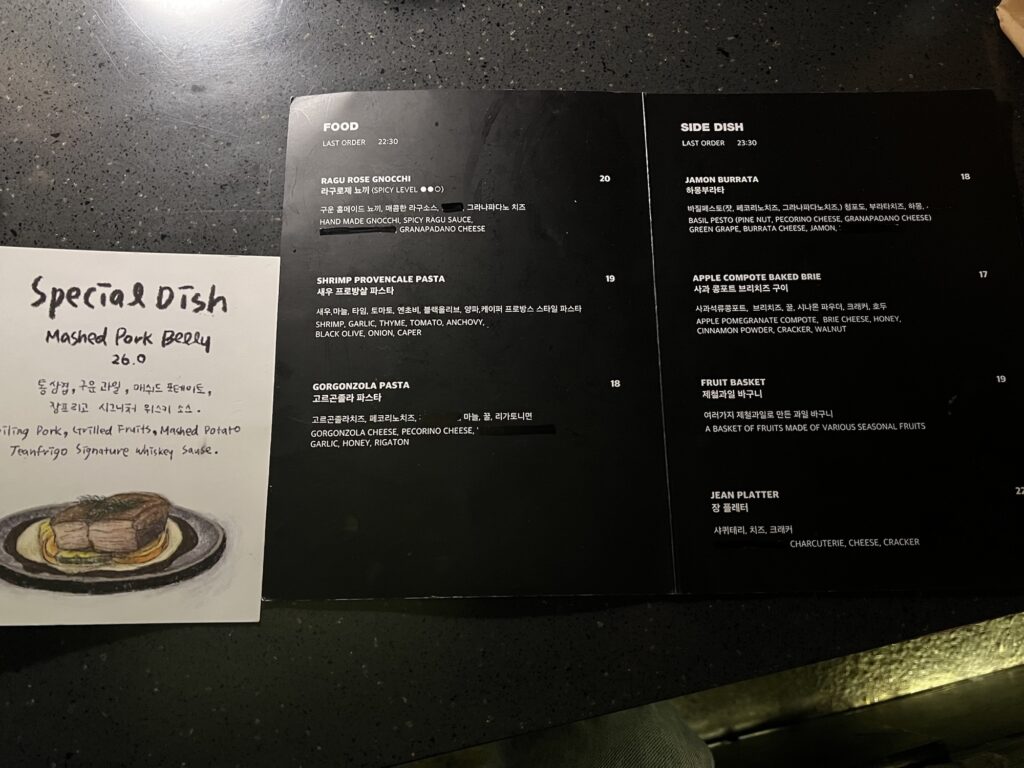 Special Dish
Mashed Pork Belly
26.0
통삼겹, 구운 과일, 매쉬드 포테이토,
장프리고 시그니처 위스키 소스.
Pork, Grilled Fruits, Mashed Potato
Jeanfrigo Signature Whiskey Sause.
FOOD
LAST ORDER 22:30
RAGU ROSE GNOCCHI 20
라구로제 뇨끼 (SPICY LEVEL ●●○)
구운 홈메이드 뇨끼, 매콤한 라구소스, 그라나파다노 치즈
HAND MADE GNOCCHI, SPICY RAGU SAUCE,
, GRANAPADANO CHEESE
SHRIMP PROVENCALE PASTA 19
새우 프로방살 파스타
새우, 마늘, 타임, 토마토, 엔초비, 블랙올리브, 양파,케이퍼 프로방스 스타일 파스타
SHRIMP, GARLIC, THYME, TOMATO, ANCHOVY,
BLACK OLIVE, ONION, CAPER
GORGONZOLA PASTA 18
고르곤졸라 파스타
고르곤졸라치즈, 페코리노치즈, , 마늘, 꿀, 리가토니면
GORGONZOLA CHEESE, PECORINO CHEESE,
GARLIC, HONEY, RIGATON
SIDE DISH
LAST ORDER 23:30
JAMON BURRATA 18
하몽부라타
바질페스토(잣, 페코리노치즈, 그라나파다노치즈,) 청포도, 부라타치즈, 하몽,
BASIL PESTO (PINE NUT, PECORINO CHEESE, GRANAPADANO CHEESE)
GREEN GRAPE, BURRATA CHEESE, JAMON,
APPLE COMPOTE BAKED BRIE 17
사과 콩포트 브리치즈 구이
사과석류콩포트, 브리치즈, 꿀, 시나몬 파우더, 크래커, 호두
APPLE POMEGRANATE COMPOTE, BRIE CHEESE, HONEY,
CINNAMON POWDER, CRACKER, WALNUT
FRUIT BASKET 19
제철과일 바구니
여러가지 제철과일로 만든 과일 바구니
A BASKET OF FRUITS MADE OF VARIOUS SEASONAL FRUITS
JEAN PLATTER 22
장 플레터
샤퀴테리, 치즈, 크래커
CHARCUTERIE, CHEESE, CRACKER